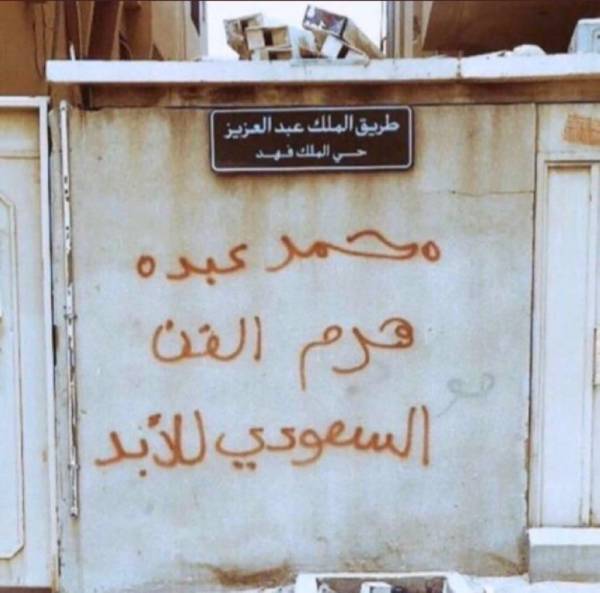 طريق الملك عبد العزيز
حي الملك فهد
محمد عبده
هرم الفن
السعودي للأبد